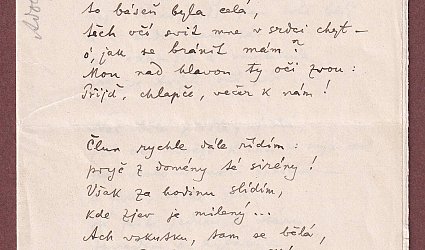 to báseň byla celá,
těch očí svit mne v srdci chyt –
ó, jak se bránit mám?
Mou nad hlavou ty oči zvou:
Přijď, chlapče, večer k nám!
Člun rychle dále řídím:
pryč z domény té sirény!
Však za hodinu slídím,
kde zjev je milený...
Ach vskutku, tam se bělá,